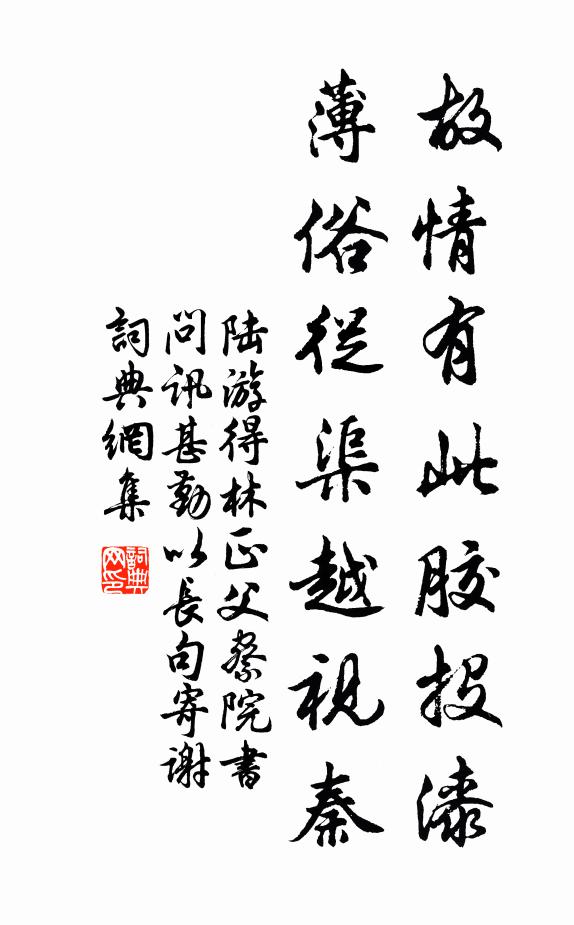 故情有此胶投漆
薄俗從渠越視秦
陆游得林正父察院書
问訊甚勤以長句寄谢
詞典網集
詞典网印